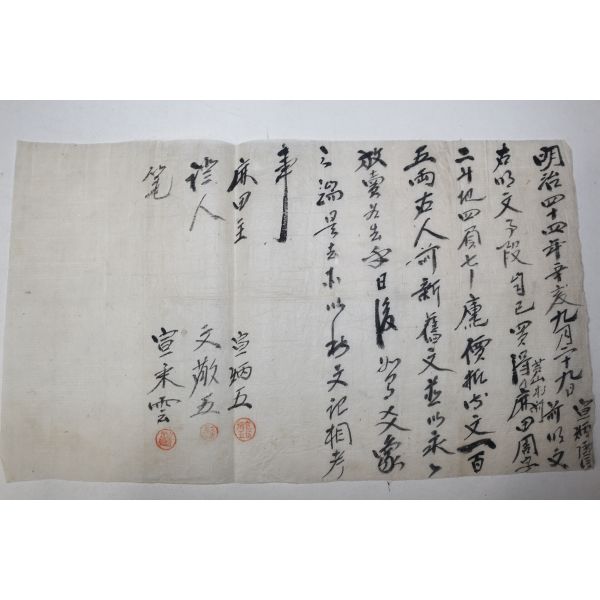 明治四十四年辛亥九月二十九日 宣炳信 前明文
右明文事段自己買得麻田周字
二斗地四負七卜廛價折錢文一百
五兩右人前新舊文並以永永
放賣爲去乎日後如有爻象
之端是去等以此文記相考
事
麻田主 宣炳五
證人 文敬五
筆 宣永雲